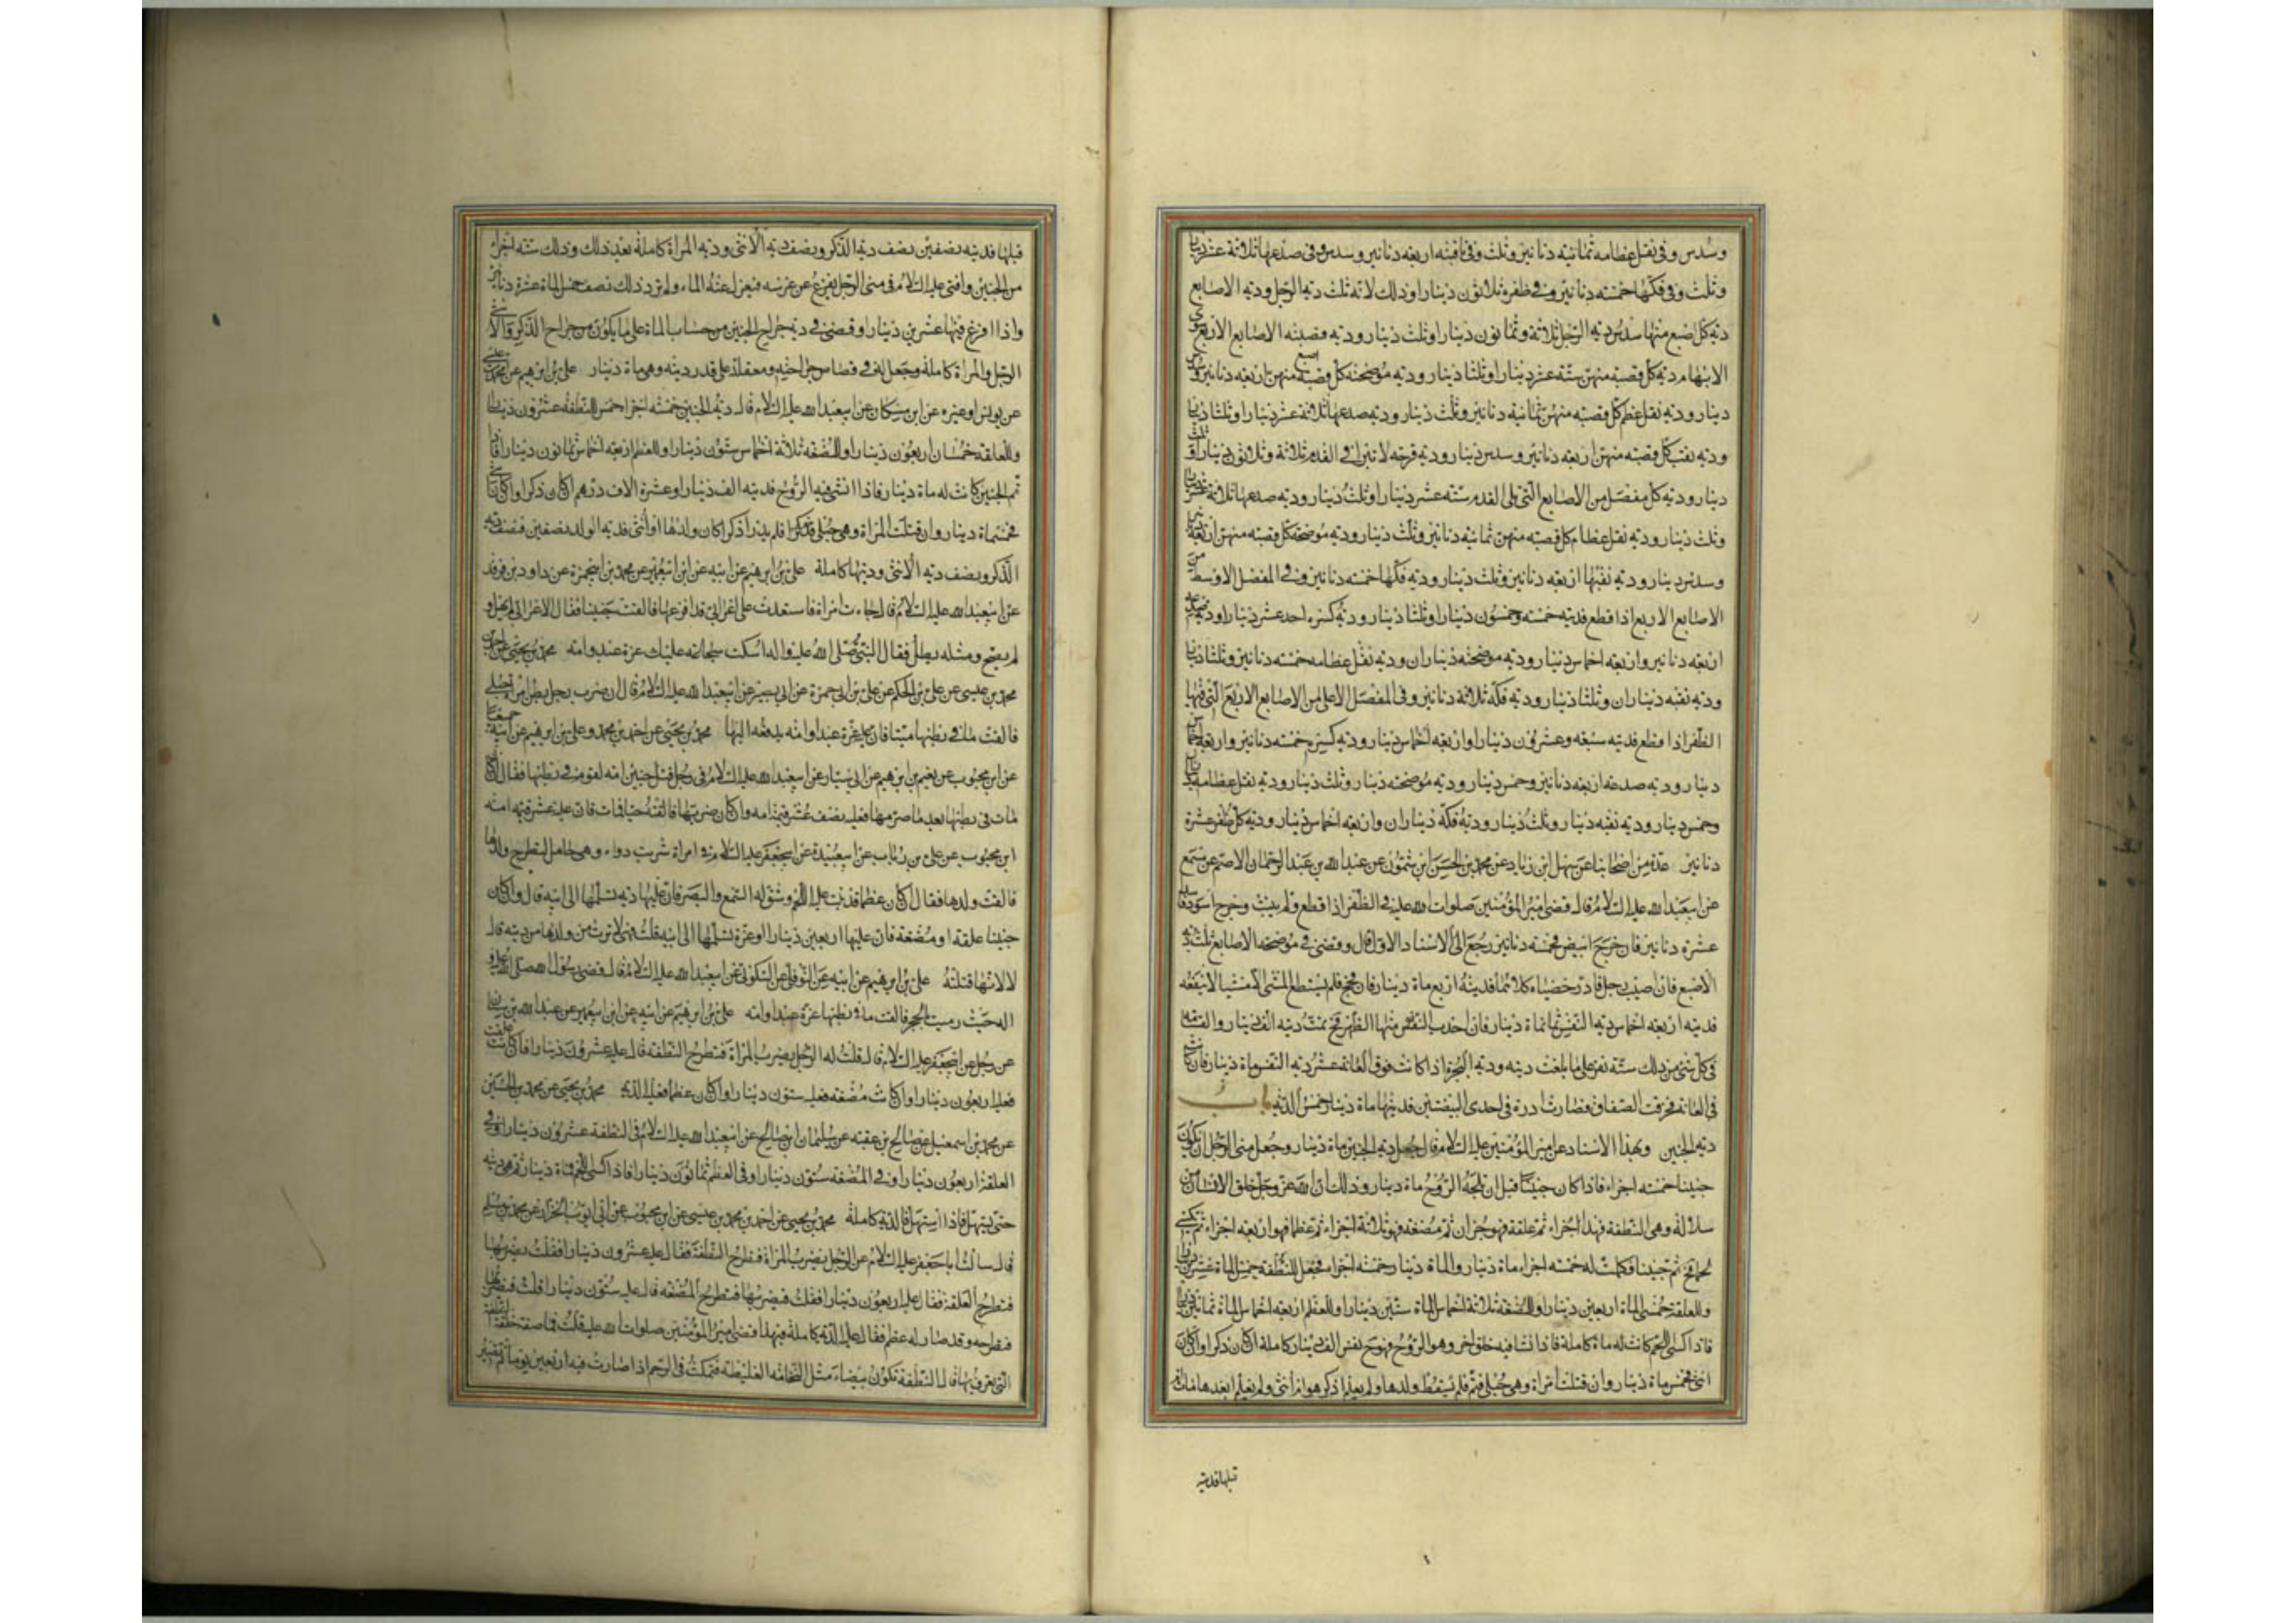 وسدس وفى نقل عظامه ثمانية دنانير وثلث وفى ناقبته اربعة دنانير وسدس وفى صدعها ثلاثة عشر دينارا
وثلث وفى فكها خمسة دنانير وفى ظفره ثلاثون دينارا وذلك لانه ثلث دية الرجل ودية الاصابع
دية كل اصبع منها سدس دية الرجل ثلاثة وثمانون دينارا وثلث دينار ودية قصبة الاصابع الاربع سوى
الابهام دية كل قصبة منهن ستة عشر دينارا وثلثا دينار ودية موضحة كل قصبة اصبع منهن اربعة دنانير وسدس
دينار ودية نقل عظم كل قصبة منهن ثمانية دنانير وثلث دينار ودية صدعها ثلاثة عشر دينارا وثلثا دينار
ودية نقب كل قصبة منهن اربعة دنانير وسدس دينار ودية قرحة لا تبرا فى القدم ثلاثة وثلاثون دينارا وثلث
دينار ودية كل مفصل من الاصابع التى تلى القدم ستة عشر دينارا وثلث دينار ودية صدعها ثلاثة عشر دينارا
وثلث دينار ودية نقل عظام كل قصبة منهن ثمانية دنانير وثلث دينار ودية موضحة كل قصبة منهن اربعة دنانير
وسدس دينار ودية نقبها اربعة دنانير وثلث دينار ودية فكها خمسة دنانير وفى المفصل الاوسط من
الاصابع الاربع اذا قطع فديته خمسة وخمسون دينارا وثلثا دينار ودية كسره احد عشر دينارا ودية صدعه
اربعة دنانير واربعة اخماس دينار ودية موضحته ديناران ودية نقل عظامه خمسة دنانير وثلثا دينار
ودية نقبه ديناران وثلثا دينار ودية فكه ثلاثة دنانير وفى المفصل الاعلى من الاصابع الاربع التى فيها
الظفر اذا قطع فديته سبعة وعشرون دينارا واربعة اخماس دينار ودية كسره خمسة دنانير واربعة اخماس
دينار ودية صدعه اربعة دنانير وخمس دينار ودية موضحته دينار وثلث دينار ودية نقل عظامه ديناران
وخمس دينار ودية نقبه دينار وثلث دينار ودية فكه ديناران واربعة اخماس دينار ودية كل ظفر عشرة
دنانير عدة من اصحابنا عن سهل ابن زياد عن محمد بن الحسن ابن شمون عن عبد الله بن عبد الرحمان الاصم عن مسمع
عن ابيعبد الله عليه السلام قال قضى امير المؤمنين صلوات الله عليه فى الظفر اذا قطع ولم ينبت وخرج اسود فاسدا
عشرة دنانير فان خرج ابيض فخمسة دنانير رجع الى الاسناد الاول قال وقضى فى موضحة الاصابع ثلث دية
الاصبع فان اصيب رجل فادر خصيتاه كلاهما فديته اربع ماة دينار فان فحج فلم يستطع المشى الا مشيا لا ينفعه
فديته اربعة اخماس دية النفس ثمانماة دينار فان احدب منها الظهر فحينئذ تمت ديته الف دينار والقسامة
فى كل شئ من ذلك ستة نفر على ما بلغت ديته ودية البجرة اذا كانت فوق العانة عشر دية النفس ماة دينار فان كانت
فى العانة فخرقت الصفاق فصارت ادرة فى احدى البيضتين فديتها ماة دينار خمس الدية باب
دية الجنين وبهذا الاسناد عن امير المؤمنين عليه السلام قال جعل دية الجنين ماة دينار وجعل منى الرجل الى ان يكون
جنينا خمسة اجزاء فاذا كان جنينا قبل ان تلجه الروح ماة دينار وذلك ان الله عز وجل خلق الانسان من
سلالة وهى النطفة فهذا جزء ثم علقة فهو جزان ثم مضغة فهو ثلاثة اجزاء ثم عظما فهو اربعة اجزاء ثم يكسى
لحما فحينئذ تم جنينا فكملت له خمسة اجزاء ماة دينار والماة دينار خمسة اجزاء فجعل للنطفة خمس الماة عشرين دينارا
وللعلقة خمسى الماة اربعين دينارا وللمضغة ثلاثة اخماس الماة ستين دينارا وللعظم اربعة اخماس الماة ثمانين دينارا
فاذا كسى اللحم كانت له ماة كاملة فاذا نشا فيه خلق اخر وهو الروح فهو حينئذ نفس الف دينار كاملة ان كان ذكرا وان كان
انثى فخمس ماة دينار وان قتلت امراة وهى حبلى فتم فلم يسقط ولدها ولم يعلم اذكر هو ام انثى ولم يعلم ابعدها مات ام
قبلها فدية
قبلها فديته نصفين نصف دية الذكر ونصف دية الانثى ودية المراة كاملة بعد ذلك وذلك ستة اجزاء
من الجنين وافتى عليه السلام فى منى الرجل يفزع عن عرسه فيعزل عنها الماء ولم يرد ذلك نصف خمس الماة عشرة دنانير
واذا افرغ فيها عشرين دينارا وقضى فى دية جراح الجنين من حساب الماة على ما يكون من جراح الذكر والانثى
الرجل والمراة كاملة وجعل له فى قصاص جراحته ومعقلته على قدر ديته وهى ماة دينار على بن ابرهيم عن محمد بن عيسى
عن يونس او غيره عن ابن مسكان عن ابيعبد الله عليه السلام قال دية الجنين خمسة اجزاء خمس للنطفة عشرون دينارا
وللعلقة خمسان اربعون دينارا وللمضغة ثلاثة اخماس ستون دينارا وللعظم اربعة اخماس ثمانون دينارا فاذا
تم الجنين كانت له ماة دينار فاذا انشى فيه الروح فديته الف دينار او عشرة الاف درهم ان كان ذكرا وان كان انثى
فخمسماة دينار وان قتلت المراة وهى حبلى فلم يدر اذكرا كان ولدها او انثى فدية الولد نصفين نصف دية
الذكر ونصف دية الانثى وديتها كاملة على بن ابرهيم عن ابيه عن ابن ابيعمير عن محمد بن ابيحمزة عن داود بن فرقد
عن ابيعبد الله عليه السلام قال جاءت امراة فاستعدت على اعرابى قد افزعها فالقت جنينا فقال الاعرابى لم يهل و
لم يصح ومثله يطل فقال النبى صلى الله عليه واله اسكت سجاعة عليك غرة عبد وامة محمد بن يحيى عن احمد بن
محمد بن عيسى عن على بن الحكم عن على بن ابى حمزة عن ابى بصير عن ابيعبد الله عليه السلام قال ان ضرب رجل بطن امراة حبلى
فالقت ما فى بطنها ميتا فان عليه غرة عبد او امة يدفعه اليها محمد بن يحيى عن احمد بن محمد وعلى بن ابرهيم عن ابيه جميعا
عن ابن محبوب عن نعيم بن ابرهيم عن ابى سيار عن ابيعبد الله عليه السلام فى رجل قتل جنين امة لقوم فى بطنها فقال ان كان
مات فى بطنها بعد ما ضربها فعليه نصف عشر قيمة امه وان كان ضربها فالقته حيا فمات فان عليه عشر قيمة امه
ابن محبوب عن على بن رئاب عن ابيعبيدة عن ابيجعفر عليه السلام فى امراة شربت دواء وهى حامل لتطرح ولدها
فالقت ولدها فقال ان كان عظما قد نبت عليه اللحم وشق له السمع والبصر فان عليها دية تسلمها الى ابيه قال وان كان
جنينا علقة او مضغة فان عليها اربعين دينارا او غرة تسلمها الى ابيه قلت فهى لا ترث من ولدها من ديته قال
لا لانها قتلته على بن ابرهيم عن ابيه عن النوفلى عن السكونى عن ابيعبد الله عليه السلام قال قضى رسول الله صلى الله عليه و
اله حيث رميت بالحجر فالقت ما فى بطنها غرة عبد او امة على بن ابرهيم عن ابيه عن ابن ابيعمير عن عبد الله بن سنان
عن رجل عن ابيجعفر عليه السلام قال قلت له الرجل يضرب المراة فتطرح النطفة قال عليه عشرون دينارا فان كانت علقة
فعليه اربعون دينارا وان كانت مضغة فعليه ستون دينارا وان كان عظما فعليه الدية محمد بن يحيى عن محمد بن الحسين
عن محمد بن اسمعيل عن صالح بن عقبة عن سليمان ابن صالح عن ابيعبد الله عليه السلام فى النطفة عشرون دينارا وفى
العلقة اربعون دينارا وفى المضغة ستون دينارا وفى العظم ثمانون دينارا فاذا كسى اللحم فماة دينار ثم هى ديته
حتى يستهل فاذا استهل فالدية كاملة محمد بن يحيى عن احمد بن محمد بن عيسى عن ابن محبوب عن ابى ايوب الخزاز عن محمد بن مسلم
قال سالت ابا جعفر عليه السلام عن الرجل يضرب المراة فتطرح النطفة فقال عليه عشرون دينارا فقلت يضربها
فتطرح العلقة فقال عليه اربعون دينارا فقلت فيضربها فتطرح المضغة قال عليه ستون دينارا قلت فيضربها
فتطرحه وقد صار له عظم فقال عليه الدية كاملة فبهذا قضى امير المؤمنين صلوات الله عليه قلت فما صفة خلقة النطفة
التى تعرف بها قال النطفة تكون بيضاء مثل النخامة الغليظة فتمكث فى الرحم اذا صارت فيه اربعين يوما ثم تصير